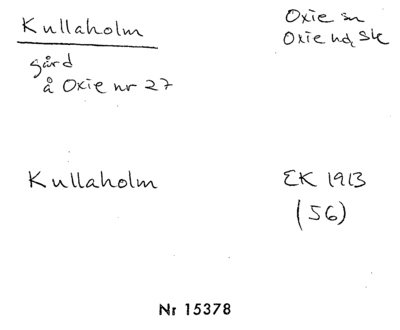 Kullaholm
Oxie sn
Oxie hd, Sk
gård
å Oxie nr 27
Kullaholm
EK 1913
(56)
Nr 15378